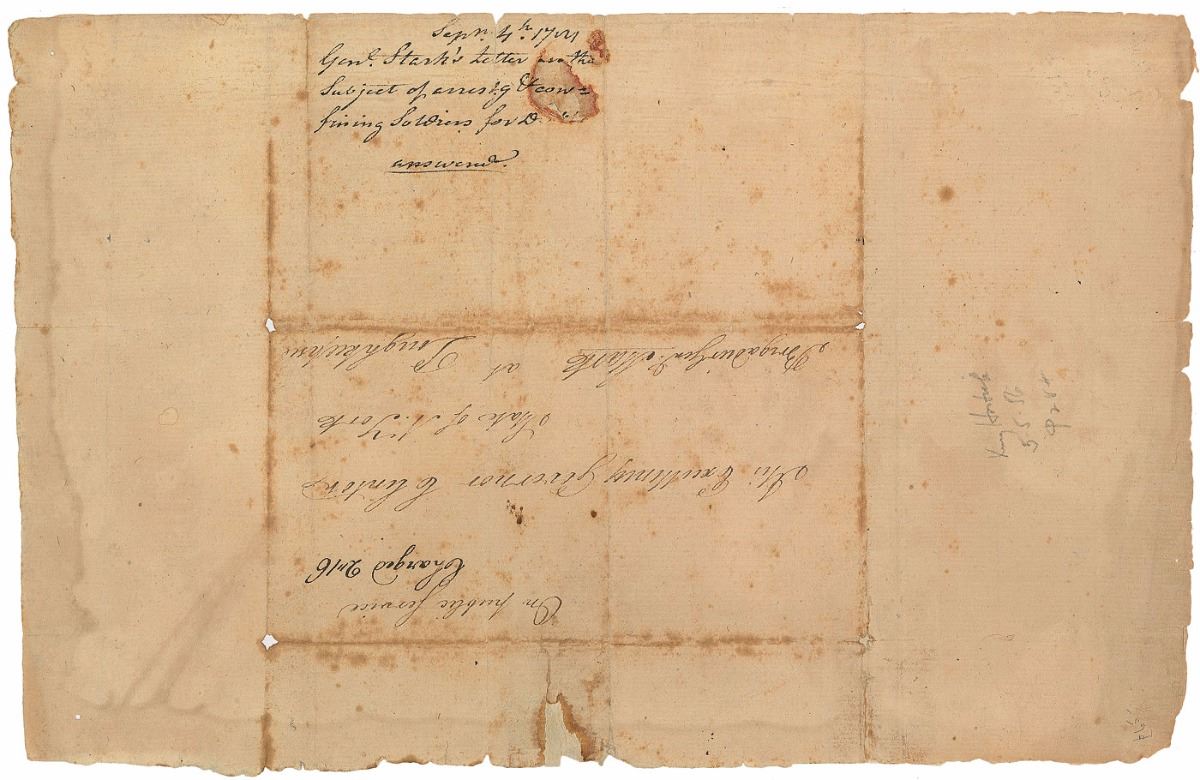 Sepr. 4th. 17
Genl. Stark's Letter on the
Subject of arrest'g & con=
fining Soldiers for D
answered.
On public Service
Charged 2.16
His Excellency Governor Clinton
State of N. York
Brigadier Genl. Stark at Poughkeepsie